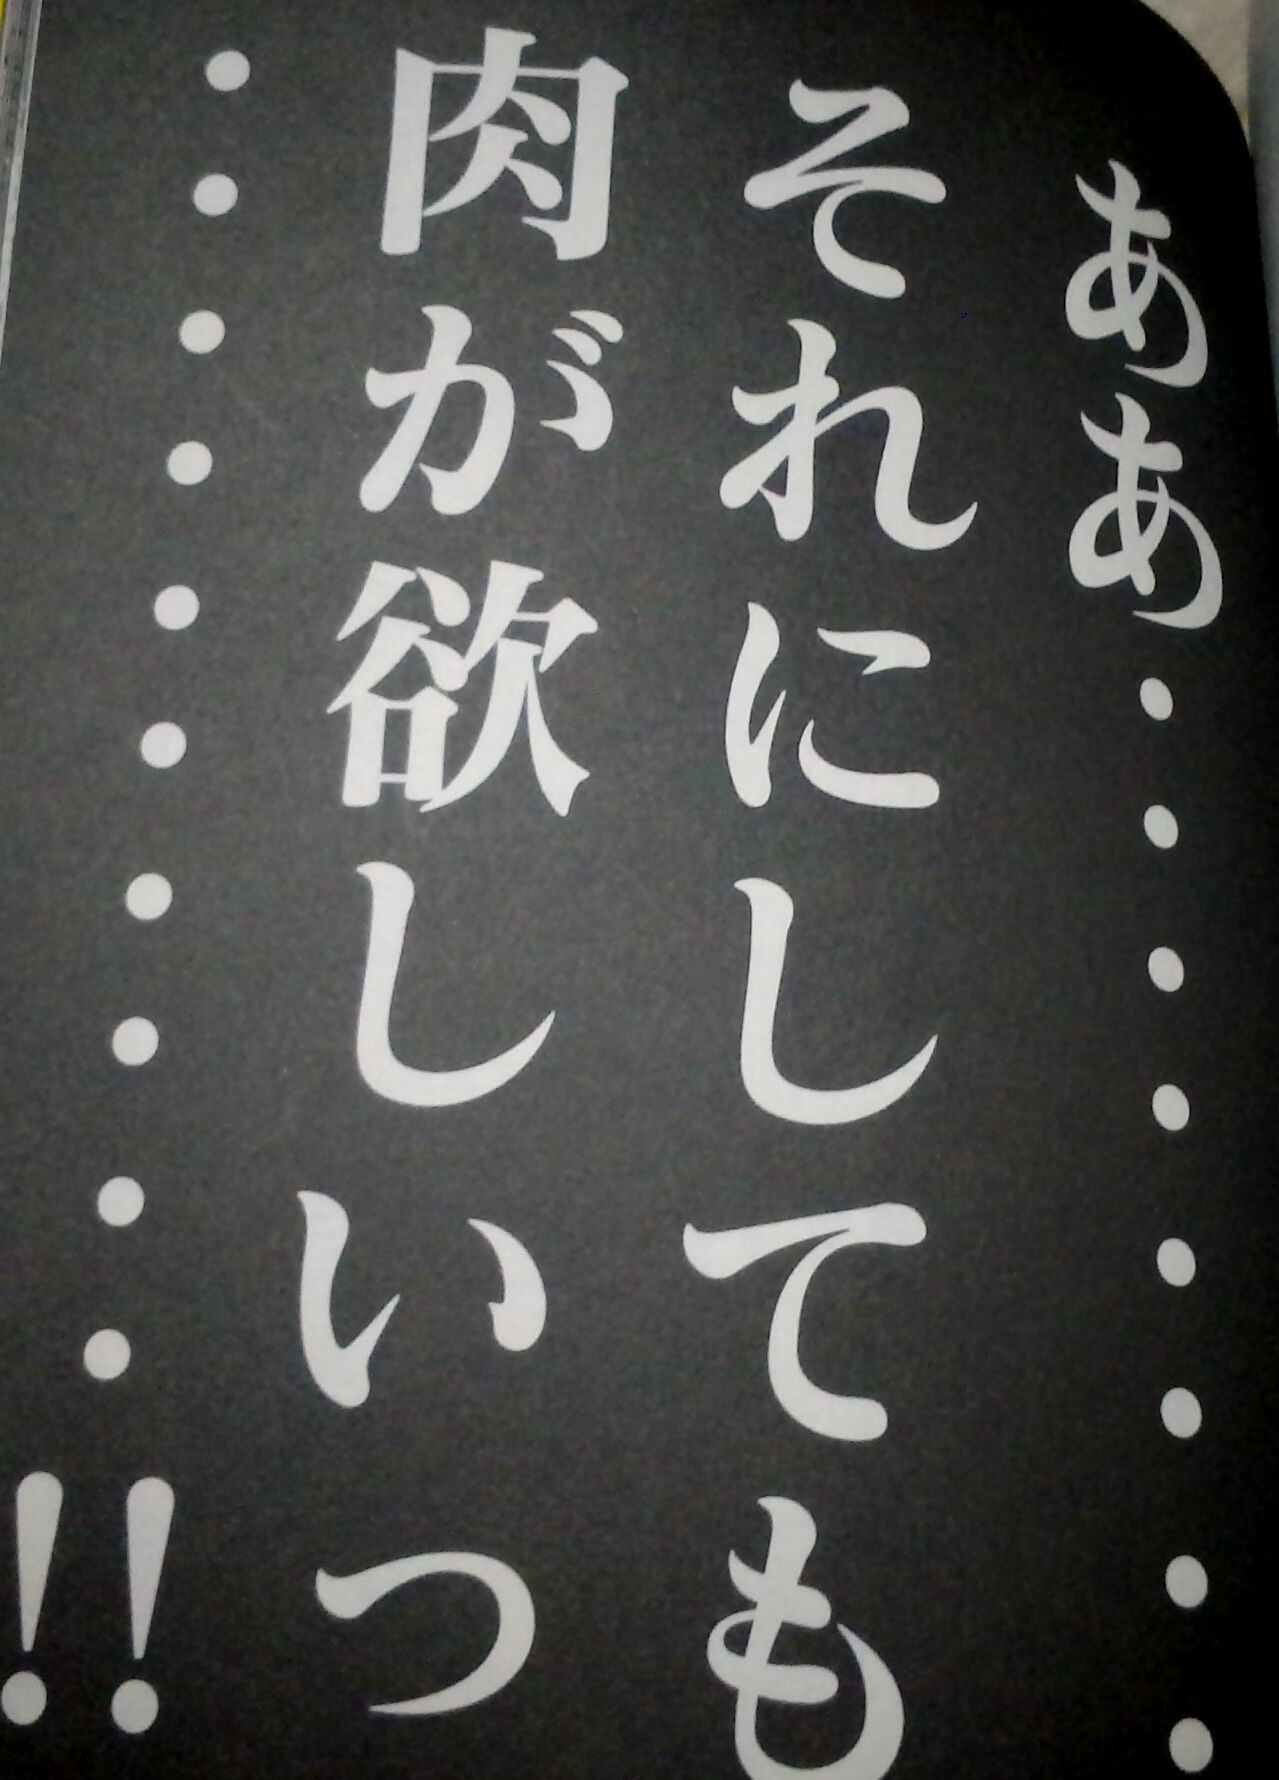 ああ………
それにしても
肉が欲しいっ
…………!!